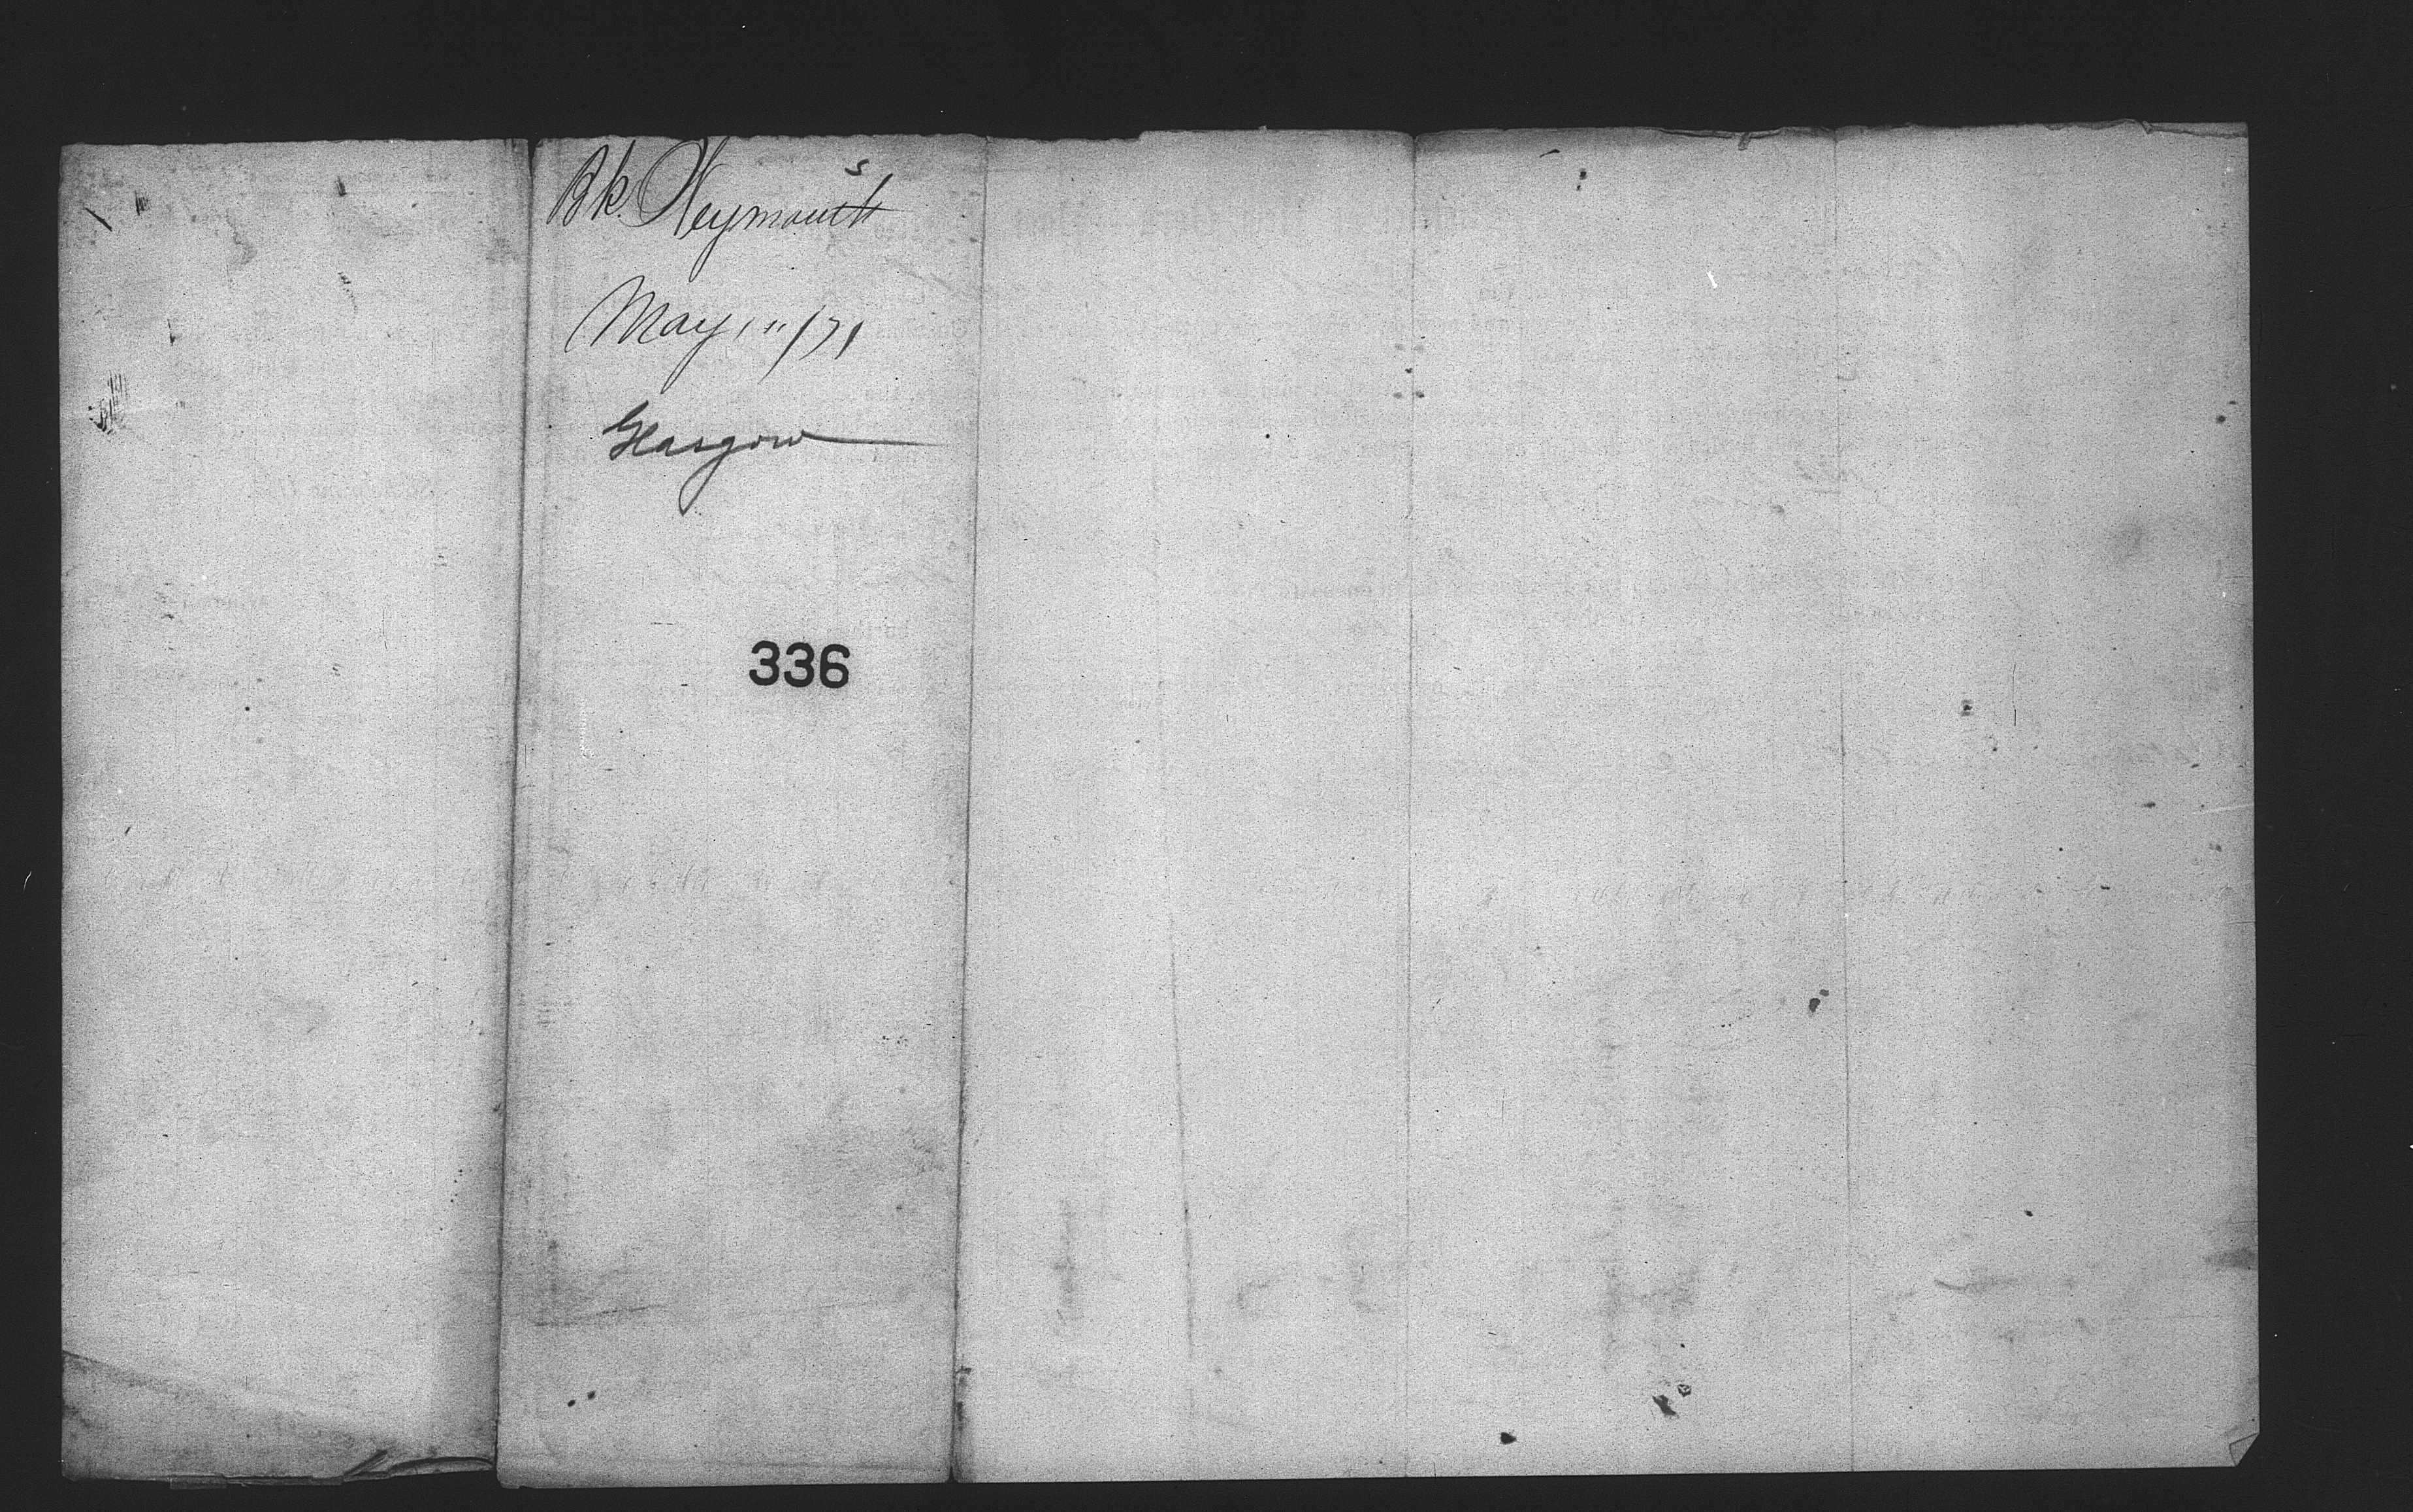 Bk. Weymouth s
May 1" /71
Glasgow
336